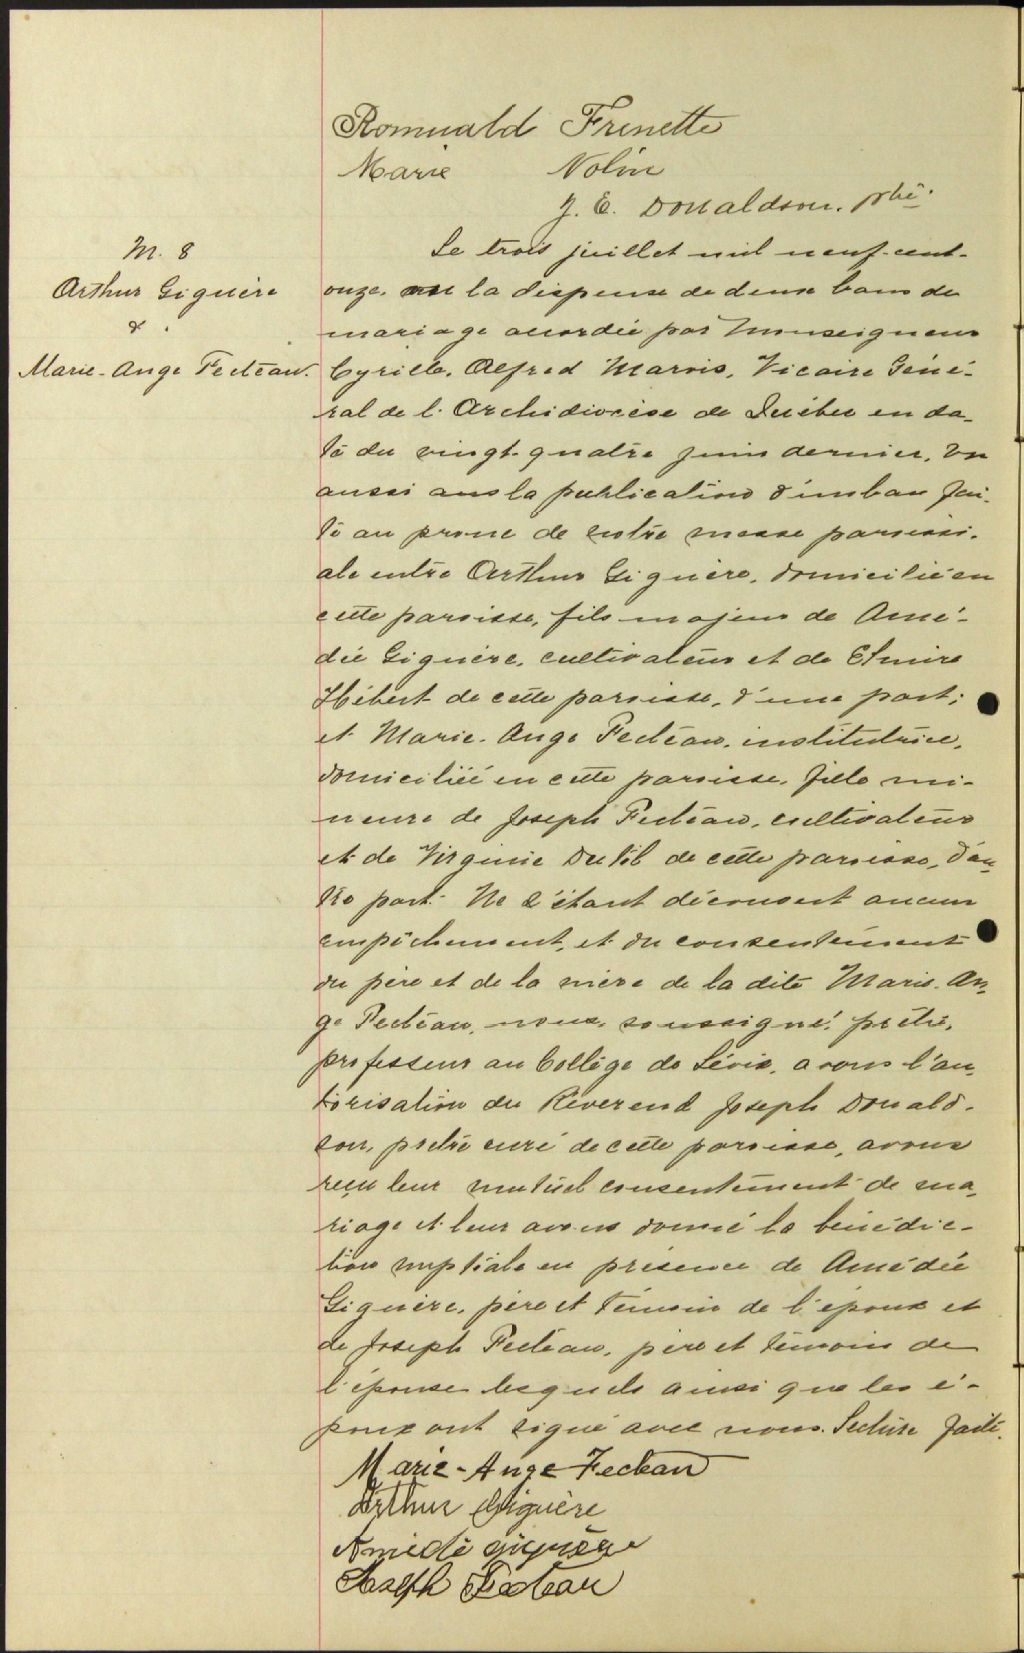 Romuald Frenette
Marie Nolin
J. E. Donaldson, ptre
M. 8
Arthur Giguère
&
Marie-Ange Fecteau.
Le trois juillet mil neuf-cent-
onze, vu la dispense de deux bans de
mariage accordée par Monseigneur
Cyrille, Alfred Marois, Vicaire Géné-
ral de l'Archidiocèse de Québec en da-
te du vingt-quatre juin dernier, vu
aussi la publication d'un ban fai-
te au prone de notre messe paroissi-
ale entre Arthur Giguère, domicilié en
cette paroisse, fils majeur de Amé-
dée Giguère, cultivateur et de Elmire
Hébert de cette paroisse, d'une part;
et Marie-Ange Fecteau, institutrice,
domiciliée en cette paroisse, fille mi-
neure de Joseph Fecteau, cultivateur
et de Virginie Dutil de cette paroisse, d'au-
tre part. Ne s'étant découvert aucun
empêchement, et du consentement
du père et de la mère de la dite Marie-An-
ge Fecteau, nous, soussigné, prêtre,
professeur au Collège de Lévis, avons l'au-
torisation du Révérend Joseph Donald-
son, prêtre curé de cette paroisse, avons
reçu leur mutuel consentement de ma-
riage et leur avons donné la bénédic-
tion nuptiale en présence de Amédée
Giguère, père et témoin de l'époux et
de Joseph Fecteau, père et témoin de
l'épouse lesquels ainsi que les é-
poux ont signé avec nous. Lecture faite.
Marie-Ange Fecteau
Arthur Giguère
Amédé giguère
Joseph Fecteau